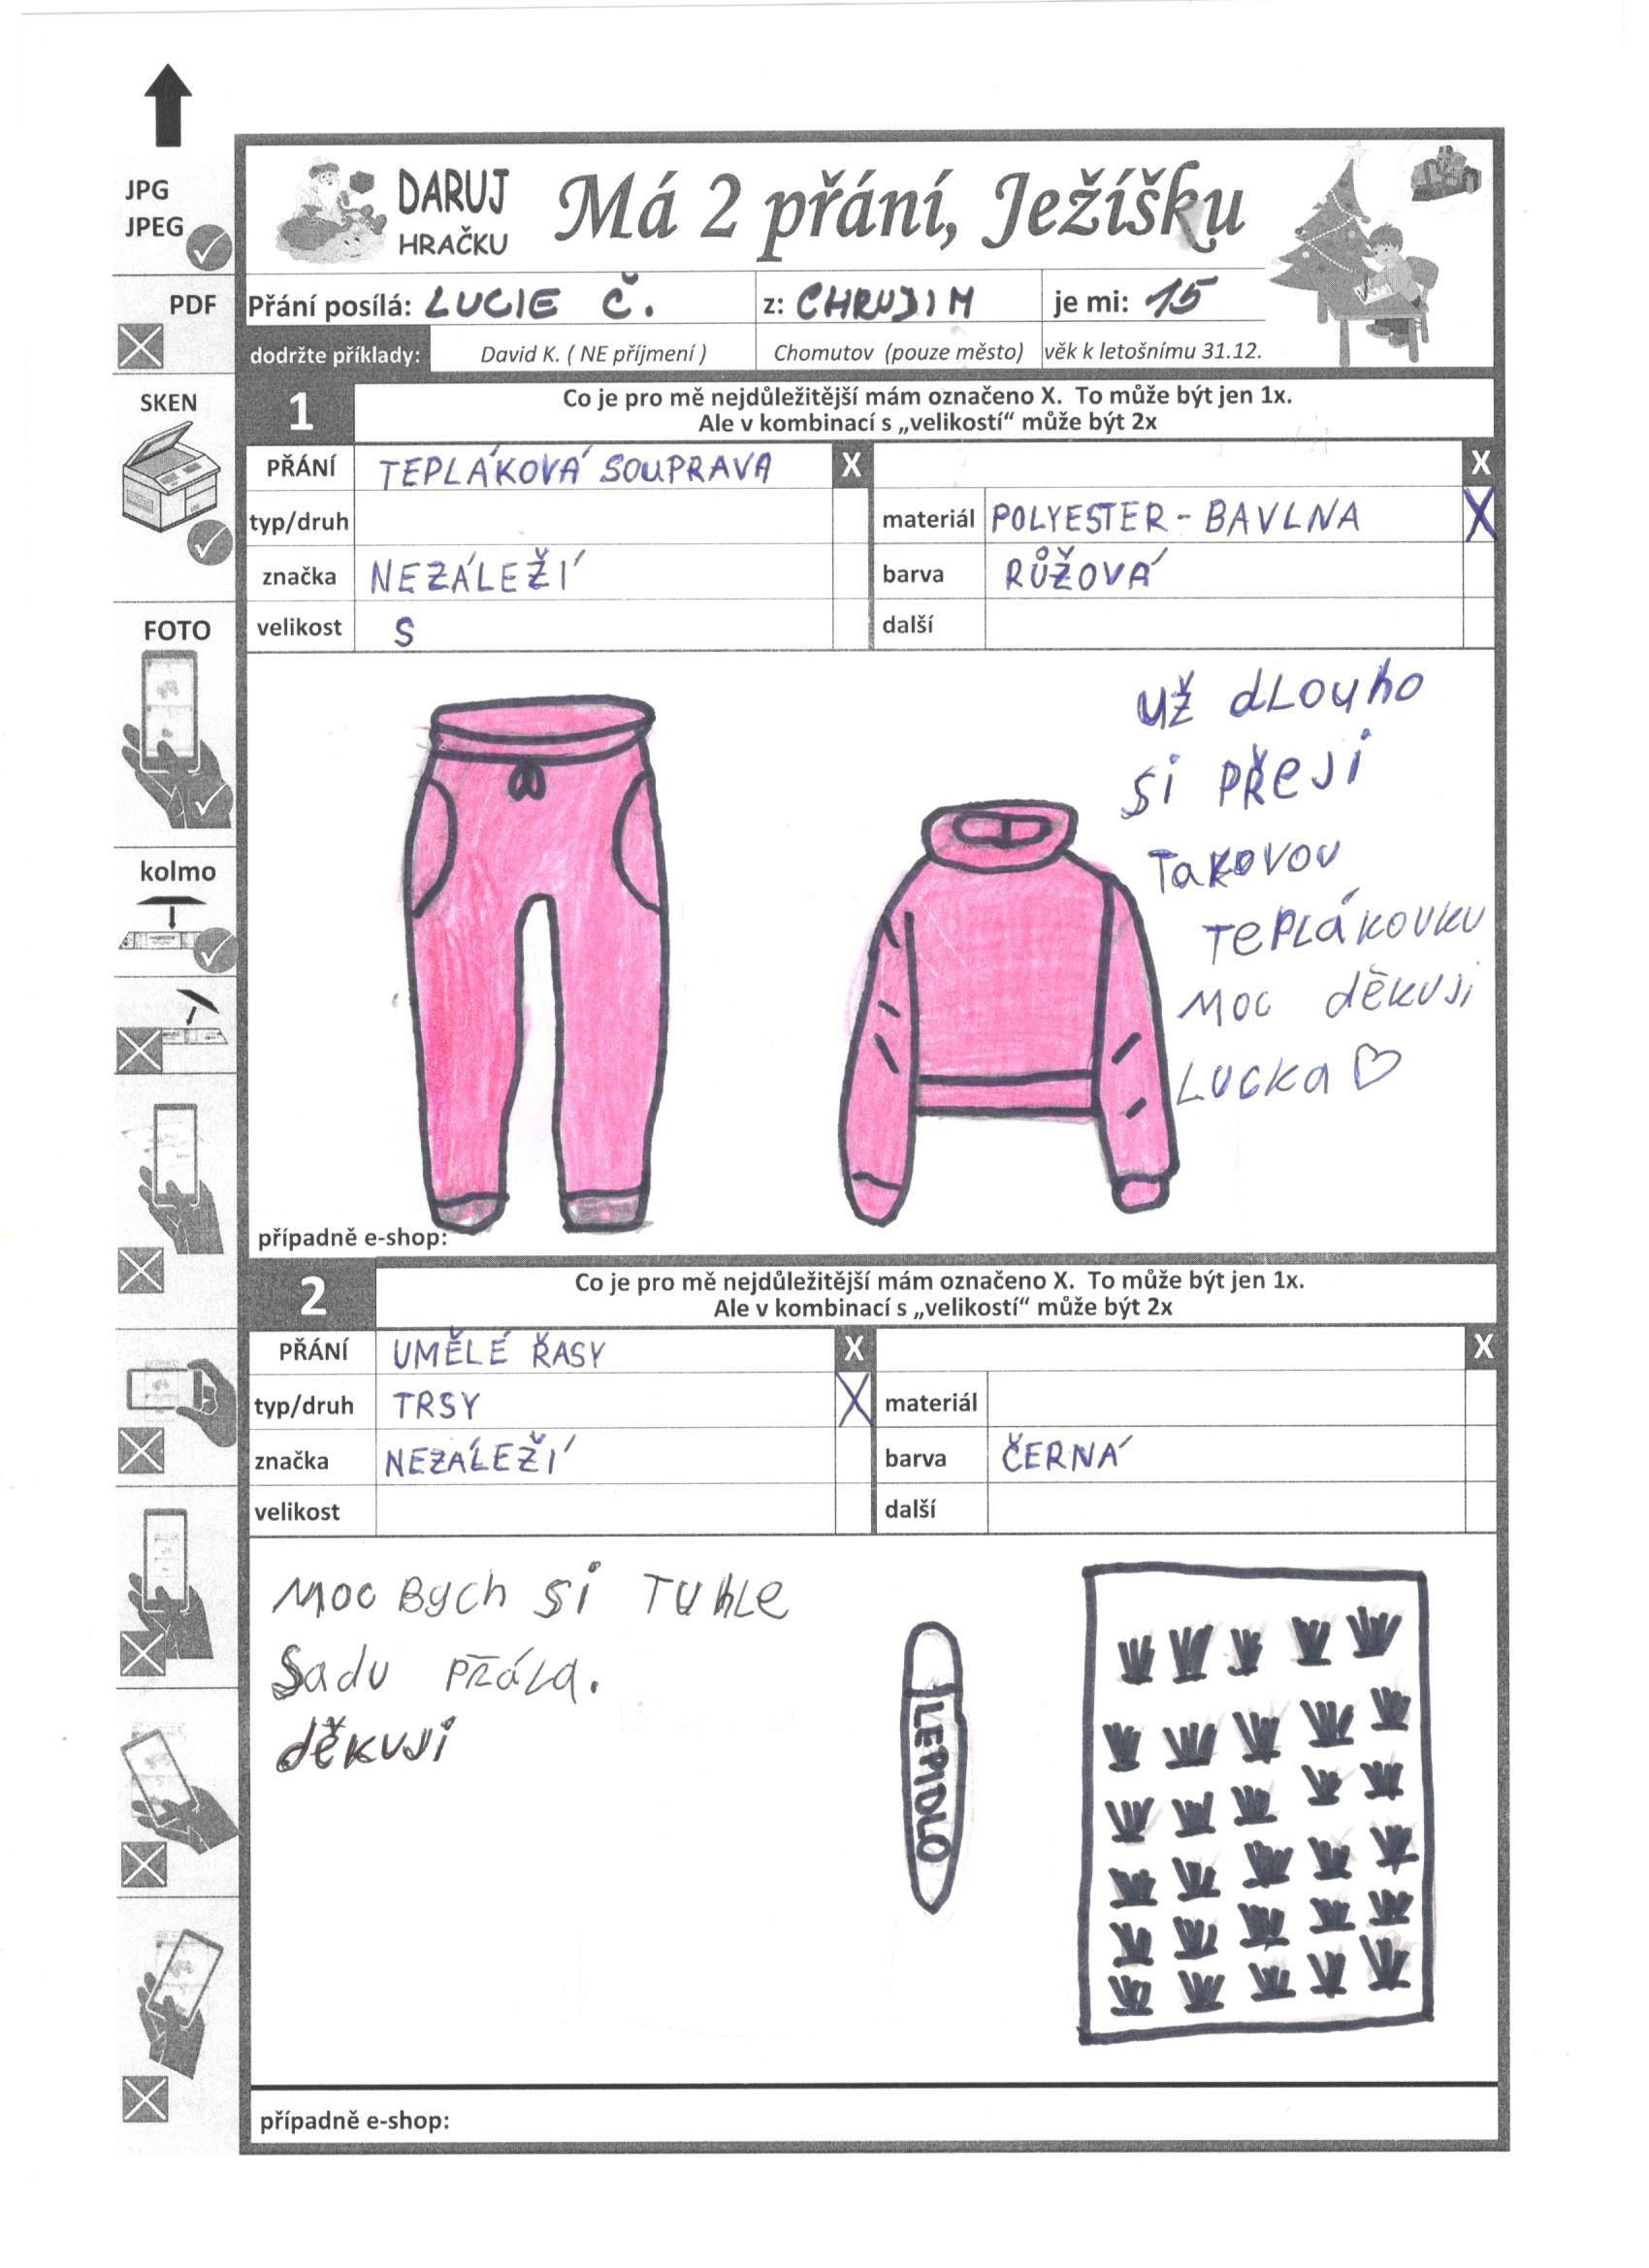 JPG
JPEG
PDF
SKEN
FOTO
kolmo
DARUJ
HRAČKU
Má 2 přání, Ježíšku
Přání posílá: LUCIE Č. z: CHRUDIM je mi: 15
dodržte příklady: David K. ( NE příjmení ) Chomutov (pouze město) věk k letošnímu 31.12.
1 Co je pro mě nejdůležitější mám označeno X. To může být jen 1x.
Ale v kombinací s „velikostí“ může být 2x
PŘÁNÍ TEPLÁKOVÁ SOUPRAVA X X
typ/druh materiál POLYESTER - BAVLNA X
značka NEZÁLEŽÍ barva RŮŽOVÁ
velikost S další
UŽ dLOUHO
Si PŘeJi
TaKOVOU
TePLÁKOVKU
MOC děKUJi
LUCKa ♡
případně e-shop:
2 Co je pro mě nejdůležitější mám označeno X. To může být jen 1x.
Ale v kombinací s „velikostí“ může být 2x
PŘÁNÍ UMĚLÉ ŘASY X X
typ/druh TRSY X materiál
značka NEZÁLEŽÍ barva ČERNÁ
velikost další
MOC BYCH Si TUhLe
SadU PŘáLa.
děKUJi
LEPIDLO
případně e-shop: